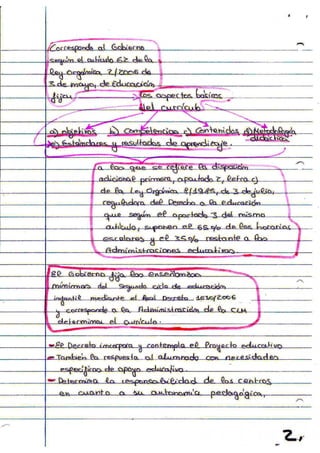 Corresponde al Gobierno
según el artículo 6.2 de la
Ley Orgánica 2/2006 de
3 de mayo, de Educación
fijar los aspectos básicos
del currículo
a) objetivos b) Competencias c) Contenidos d) Metodología
didáctica
e) Estándares y resultados de aprendizaje.
a las que se refiere la disposición
adicional primera, apartado 2, letra c)
de la Ley Orgánica 8/1985, de 3 de julio,
reguladora del Derecho a la Educación
que según el apartado 3 del mismo
artículo, suponen el 65% de los horarios
escolares y el 35% restante a las
Administraciones educativas.
El Gobierno fija las enseñanzas
mínimas del Segundo ciclo de educación
infantil mediante el Real Decreto 1630/2006
y corresponde a la Administración de la CLM
determinar el currículo.
El Decreto incorpora y contempla el Proyecto educativo
También la respuesta al alumnado con necesidades
específicas de apoyo educativo.
Determina la responsabilidad de los centros
en cuanto a su autonomía pedagógica.
2.